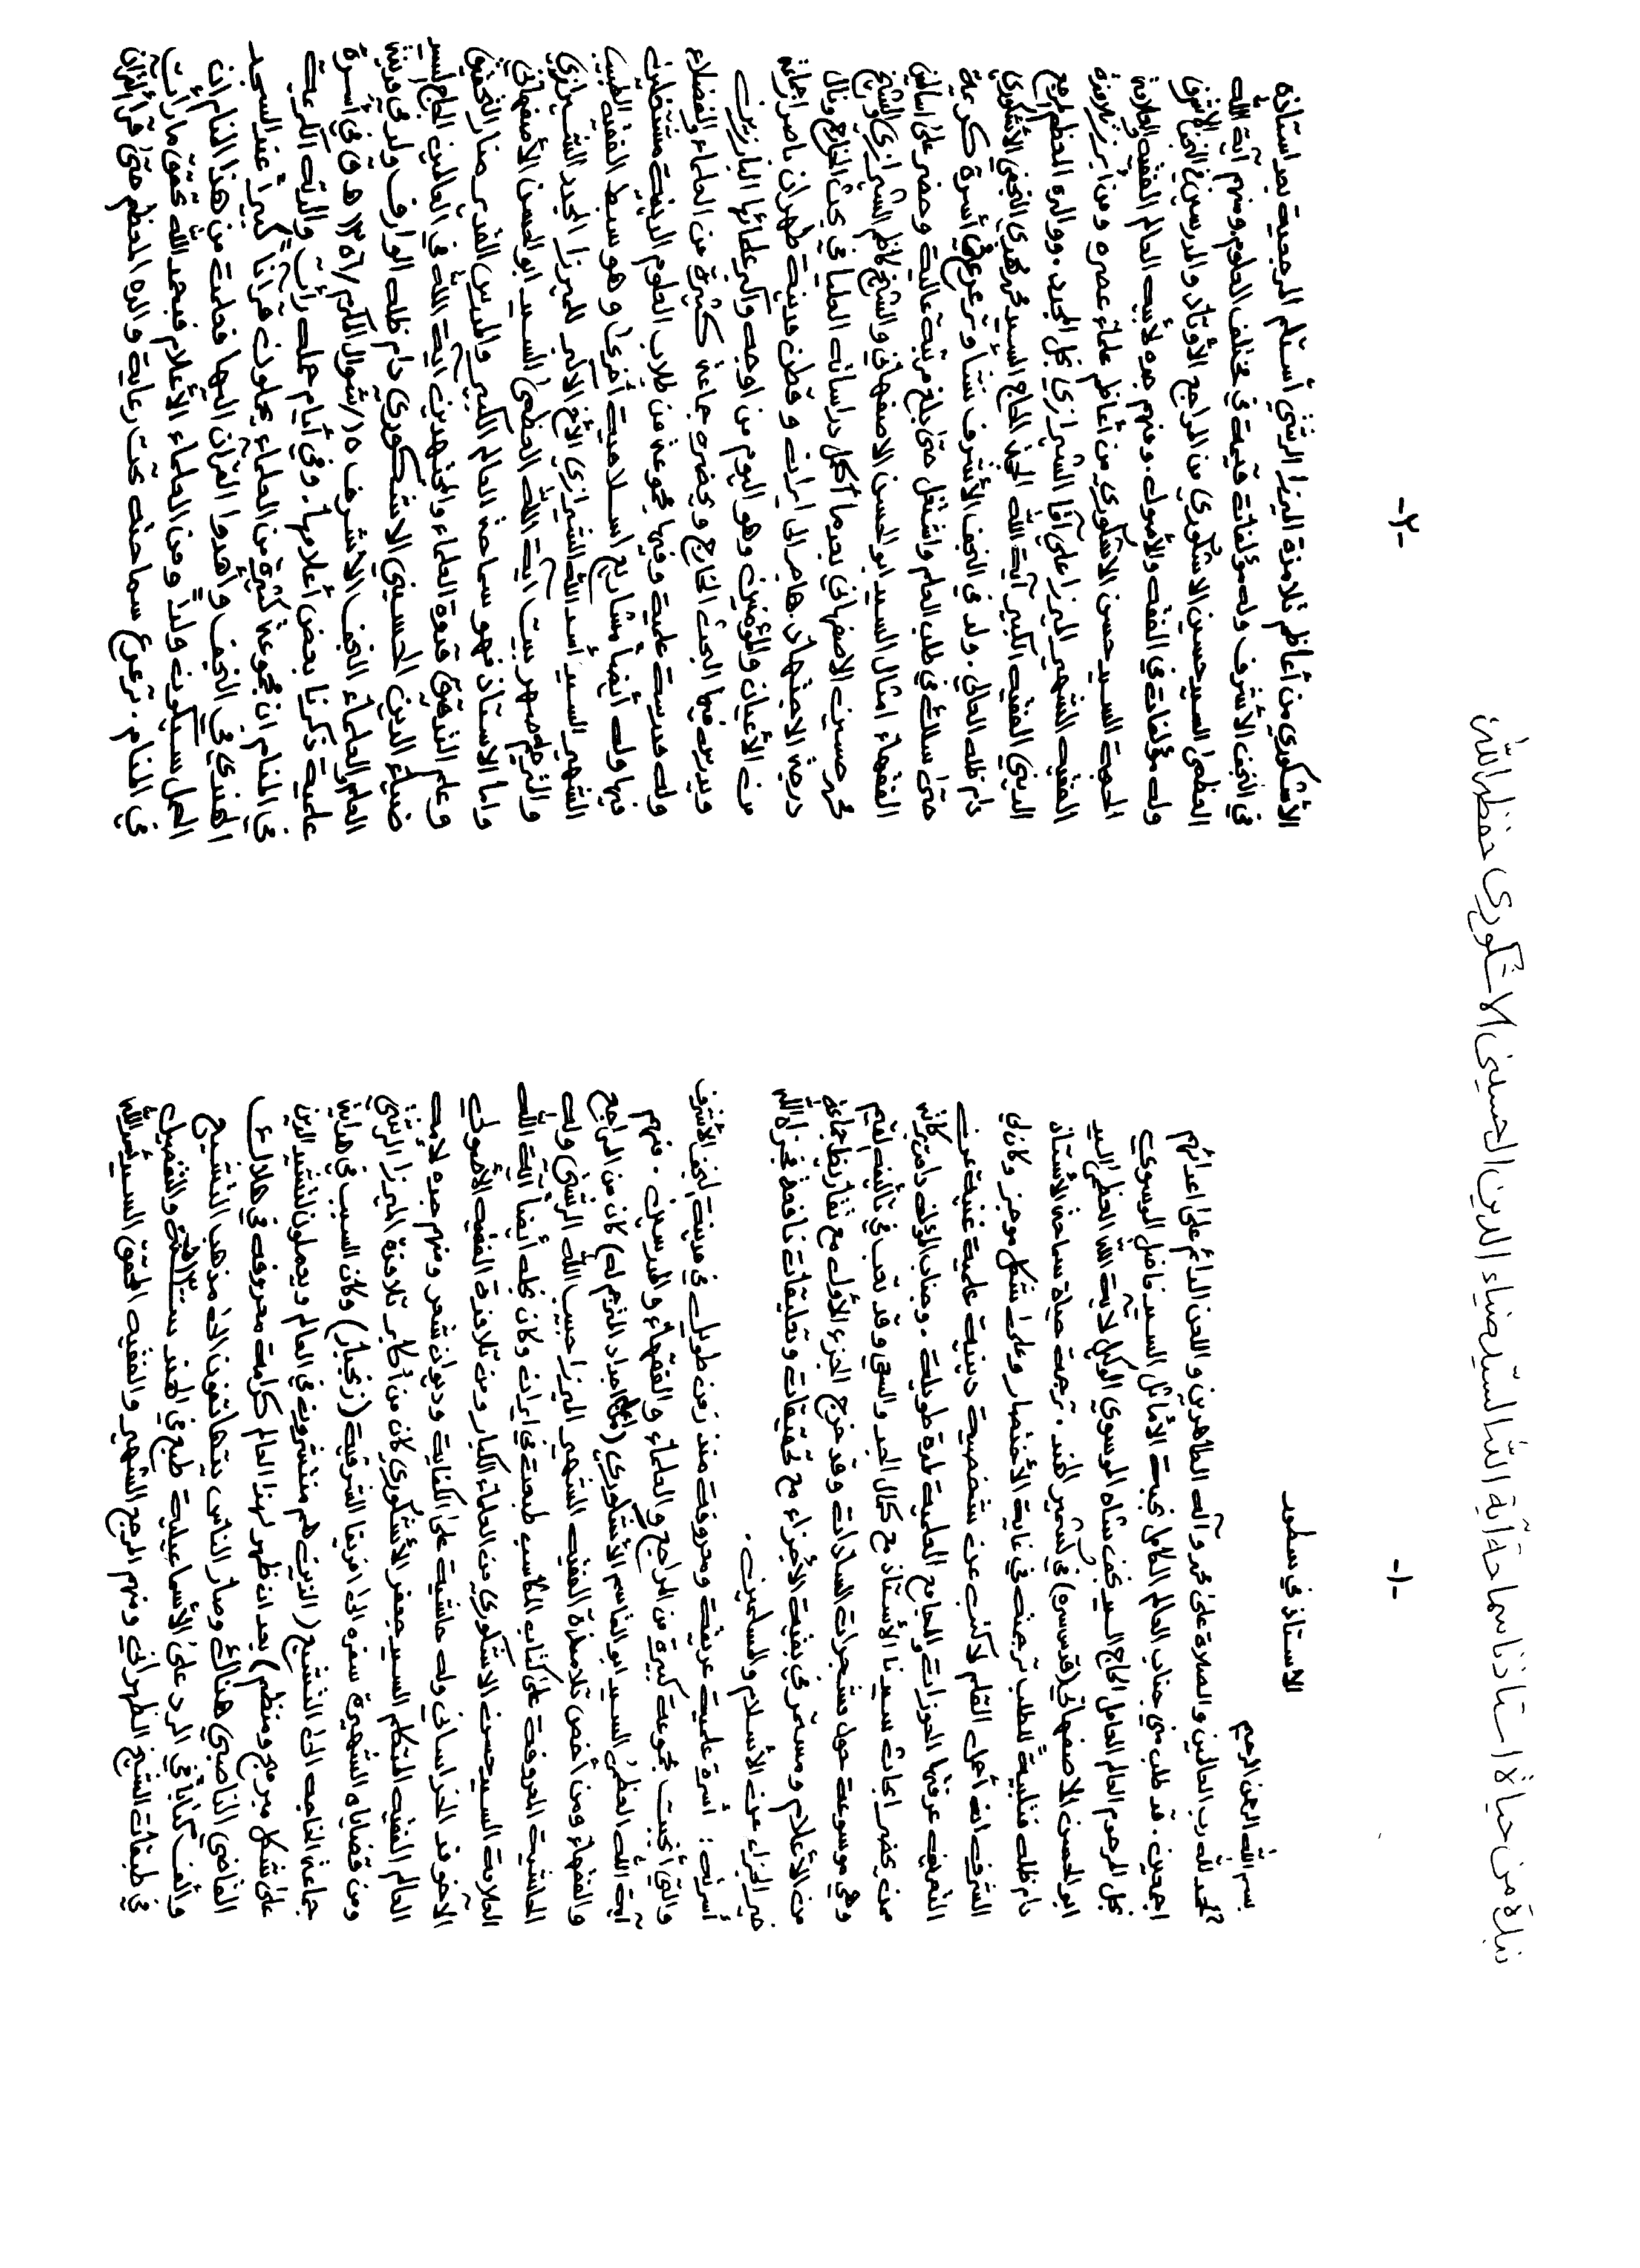 نبذة من حياة استاذنا سماحة آية الله السيد ضياء الدين الحسيني الاشكوري حفظه الله
-١-
الاستاذ في سطور
بسم الله الرحمن الرحيم
الحمد لله رب العالمين والصلاة على محمد وآله الطاهرين واللعن الدائم على اعدائهم
اجمعين. قد طلب مني جناب العالم الكامل نخبة الأماثل السيد فاضل الموسوي
نجل المرحوم العالم العامل الحاج السيد نجف شاه الموسوي الوكيل لآية الله العظمى السيد
ابو الحسن الاصفهاني (قدس سره) في كشمير الهند. ترجمة حياة سماحة الأستاذ
دام ظله فتلبيةً لطلب ترجمته في غاية الأختصار وعلى شكل موجز وكان لي
الشرف انه أحمل القلم لأكتب عن شخصية دينية علمية غنية عن
التعريف عرفتها الحوزات والمجامع العلمية لمدة طويلة. وجناب المؤلف دامت بركاته
ممن يحضر ابحاث سيدنا الأستاذ مع كمال الجد والسعي وقد تعب في تأليفه القيم
وهي موسوعة حول مشجرات السادات وقد خرج الجزء الأول مع تقاريظ جماعة
من الأعلام ومستمر في بقية الأجزاء مع تحقيقات وتعليقات نافعة فجزاه الله
خير الجزاء عن الأسلام والمسلمين.
أسرته: أسرة علمية عريقة ومعروفة منذ زمن طويل في مدينة النجف الأشرف
والتي أنجبت مجموعة كبيرة من المراجع والعلماء والفقهاء والمدرسين. فمنهم
آية الله العظمى السيد ابو القاسم الأشكوري (من اجداد المترجم له) كان من المراجع
والفقهاء ومن أخص تلامذة الفقيه الشهير الميرزا حبيب الله الرشتي وله
الحاشية المعروفة على كتاب المكاسب طبعت في ايران وكان نجله أيضاً آية الله
العلامة السيد حسن الاشكوري من العلماء الكبار ومن تلامذة الفقيه الأصولي
الآخوند الخراساني وله حاشية على الكفاية وديوان شعر ومنهم جده لأمه
العالم الفقيه المتكلم السيد جعفر الأشكوري كان من أكابر تلامذة الميرزا الرشتي
ومن قضاياه الشهيرة سفره الى افريقا الشرقية (زنجبار) وكان السبب في هداية
جماعة الخاجه الى التشيع (الذين هم منتشرون في العالم ويعملون لتشييد الدين
على شكل مبرمج ومنظم) بعد ان ظهر لهذا العالم كرامة معروفة في هلال
القاضي الناصبي هناك وصار الناس يتهافتون الى مذهب التشيع
وألف كتاباً في الرد على الأسماعيلية طبع في الهند سنة والتفصيل
في طبقات الشيخ الطهراني ومنهم المرجع الشهير والفقيه المحقق السيد عبد الله
-٢-
الأشكوري من أعاظم تلامذة الميرزا الرشتي أستلم المرجعية بعد استاذه
في النجف الأشرف وله مؤلفات قيمة في مختلف العلوم ومنهم آية الله
العظمى السيد حسين الاشكوري من المراجع الأوتاد والمدرسين في النجف الأشرف
وله مؤلفات في الفقه والأصول. ومنهم جده لأبيه العالم الفقيه والعلامة
الحجة السيد حسن الاشكوري من أعاظم علماء عصره ومن أبرز تلامذة
الفقيه الشهير الميرزا علي آقا الشيرازي نجل المجدد. ووالده المعظم المرجع
الديني الفقيه الكبير آية الله الحجة الحاج السيد محمد مهدي النجفي الأشكوري
دام ظله العالي. ولد في النجف الأشرف نشأ وترعرع في أسرة كريمة
حتى سلك في طلب العلم واشتغل حتى بلغ مرتبة عالية وحضر على أساطين
الفقهاء امثال السيد ابو الحسن الاصفهاني والشيخ كاظم الشيرازي والشيخ
محمد حسين الاصفهاني بعدما اكمل دراساته العليا في بحث الخارج ونال
درجة الاجتهاد. هاجر الى ايران وقطن مدينة طهران ناصر اجابة
من الأعيان والمؤمنين وهو اليوم من اوجه واكبر علمائها البارزين
ويدرس فيها البحث الخارج ويحضره جماعة كثيرة من العلماء والفضلاء
وله مدرسة علمية وفيها مجموعة من طلاب العلوم الدينية مشتغلين
فيها وله أيضاً مشاريع اسلامية أخرى وهو سبط الفقيه الطبيب
الشهير السيد أسد الله الشيرازي الأخ الأكبر للميرزا المجدد الشيرازي
والمترجم صهر بيت آية الله العظمى السيد ابو الحسن الأصفهاني
واما الاستاذ فهو سماحة العالم الكبير والمدرس القدير منار التحقيق
وعلم التدقيق قدوة العلماء والمجتهدين آية الله في العالمين الحاج السيد
ضياء الدين الحسيني الاشكوري دام ظله الوارف ولد في مدينة
العلم والعلماء النجف الأشرف ٥/شوال المكرم/١٣٥٦ هـ ق في أسرة
علمية ذكرنا بعض أعلامها. وفي أيام حمله رأت والدته المكرمة
في المنام ان مجموعة كثيرة من العلماء يحملون قرآناً كبيراً عند المسجد
الهندي في النجف وأهدوا القرآن اليها فعلمت من هذا المنام ان
الحمل سيكون ولداً ومن العلماء الأعلام فبحمد الله تحقق ما رأت
في المنام. ترعرع سماحته تحت رعاية والده المعظم حتى قرأ القرآن